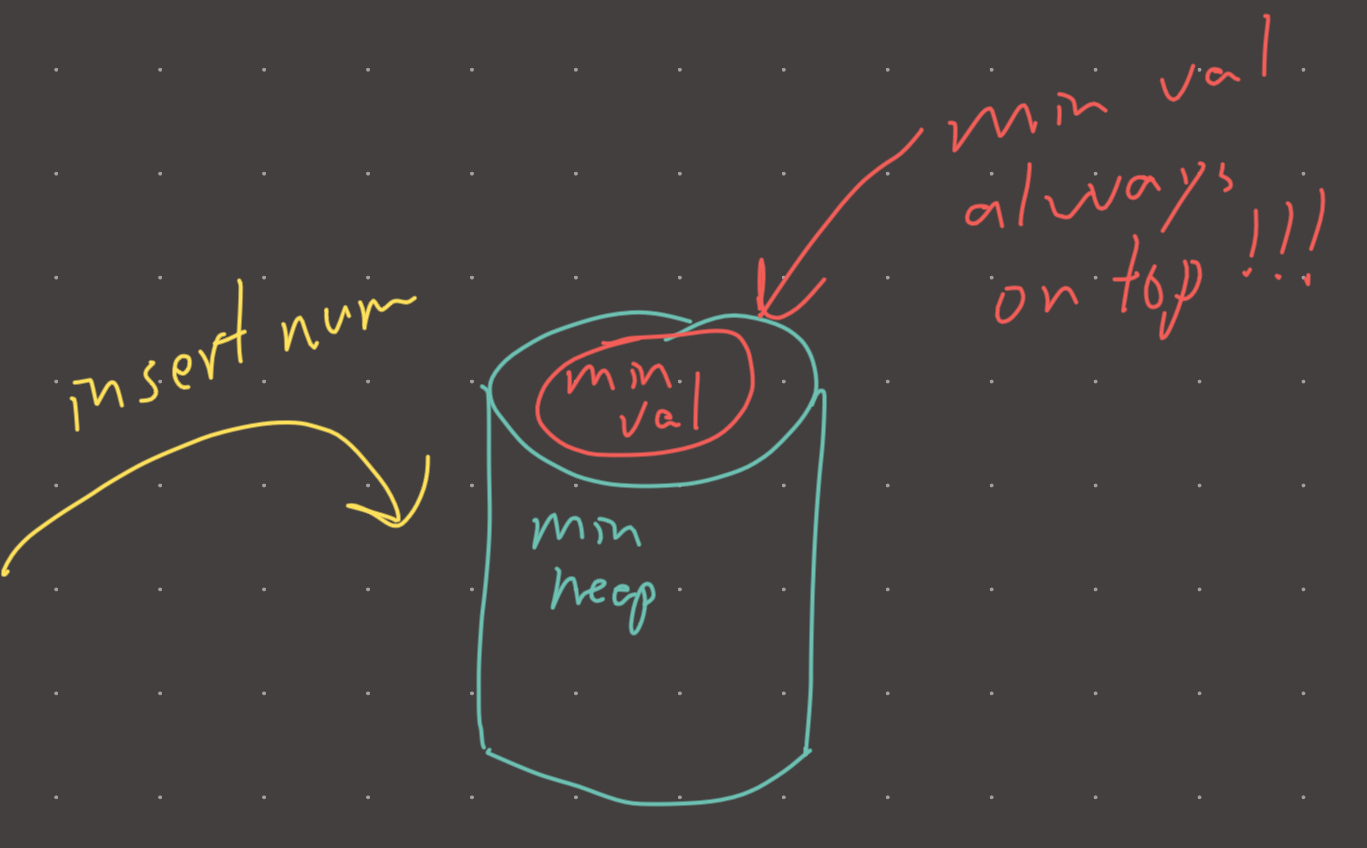 min val
always
on top !!!
insert num
min
val
min
heap